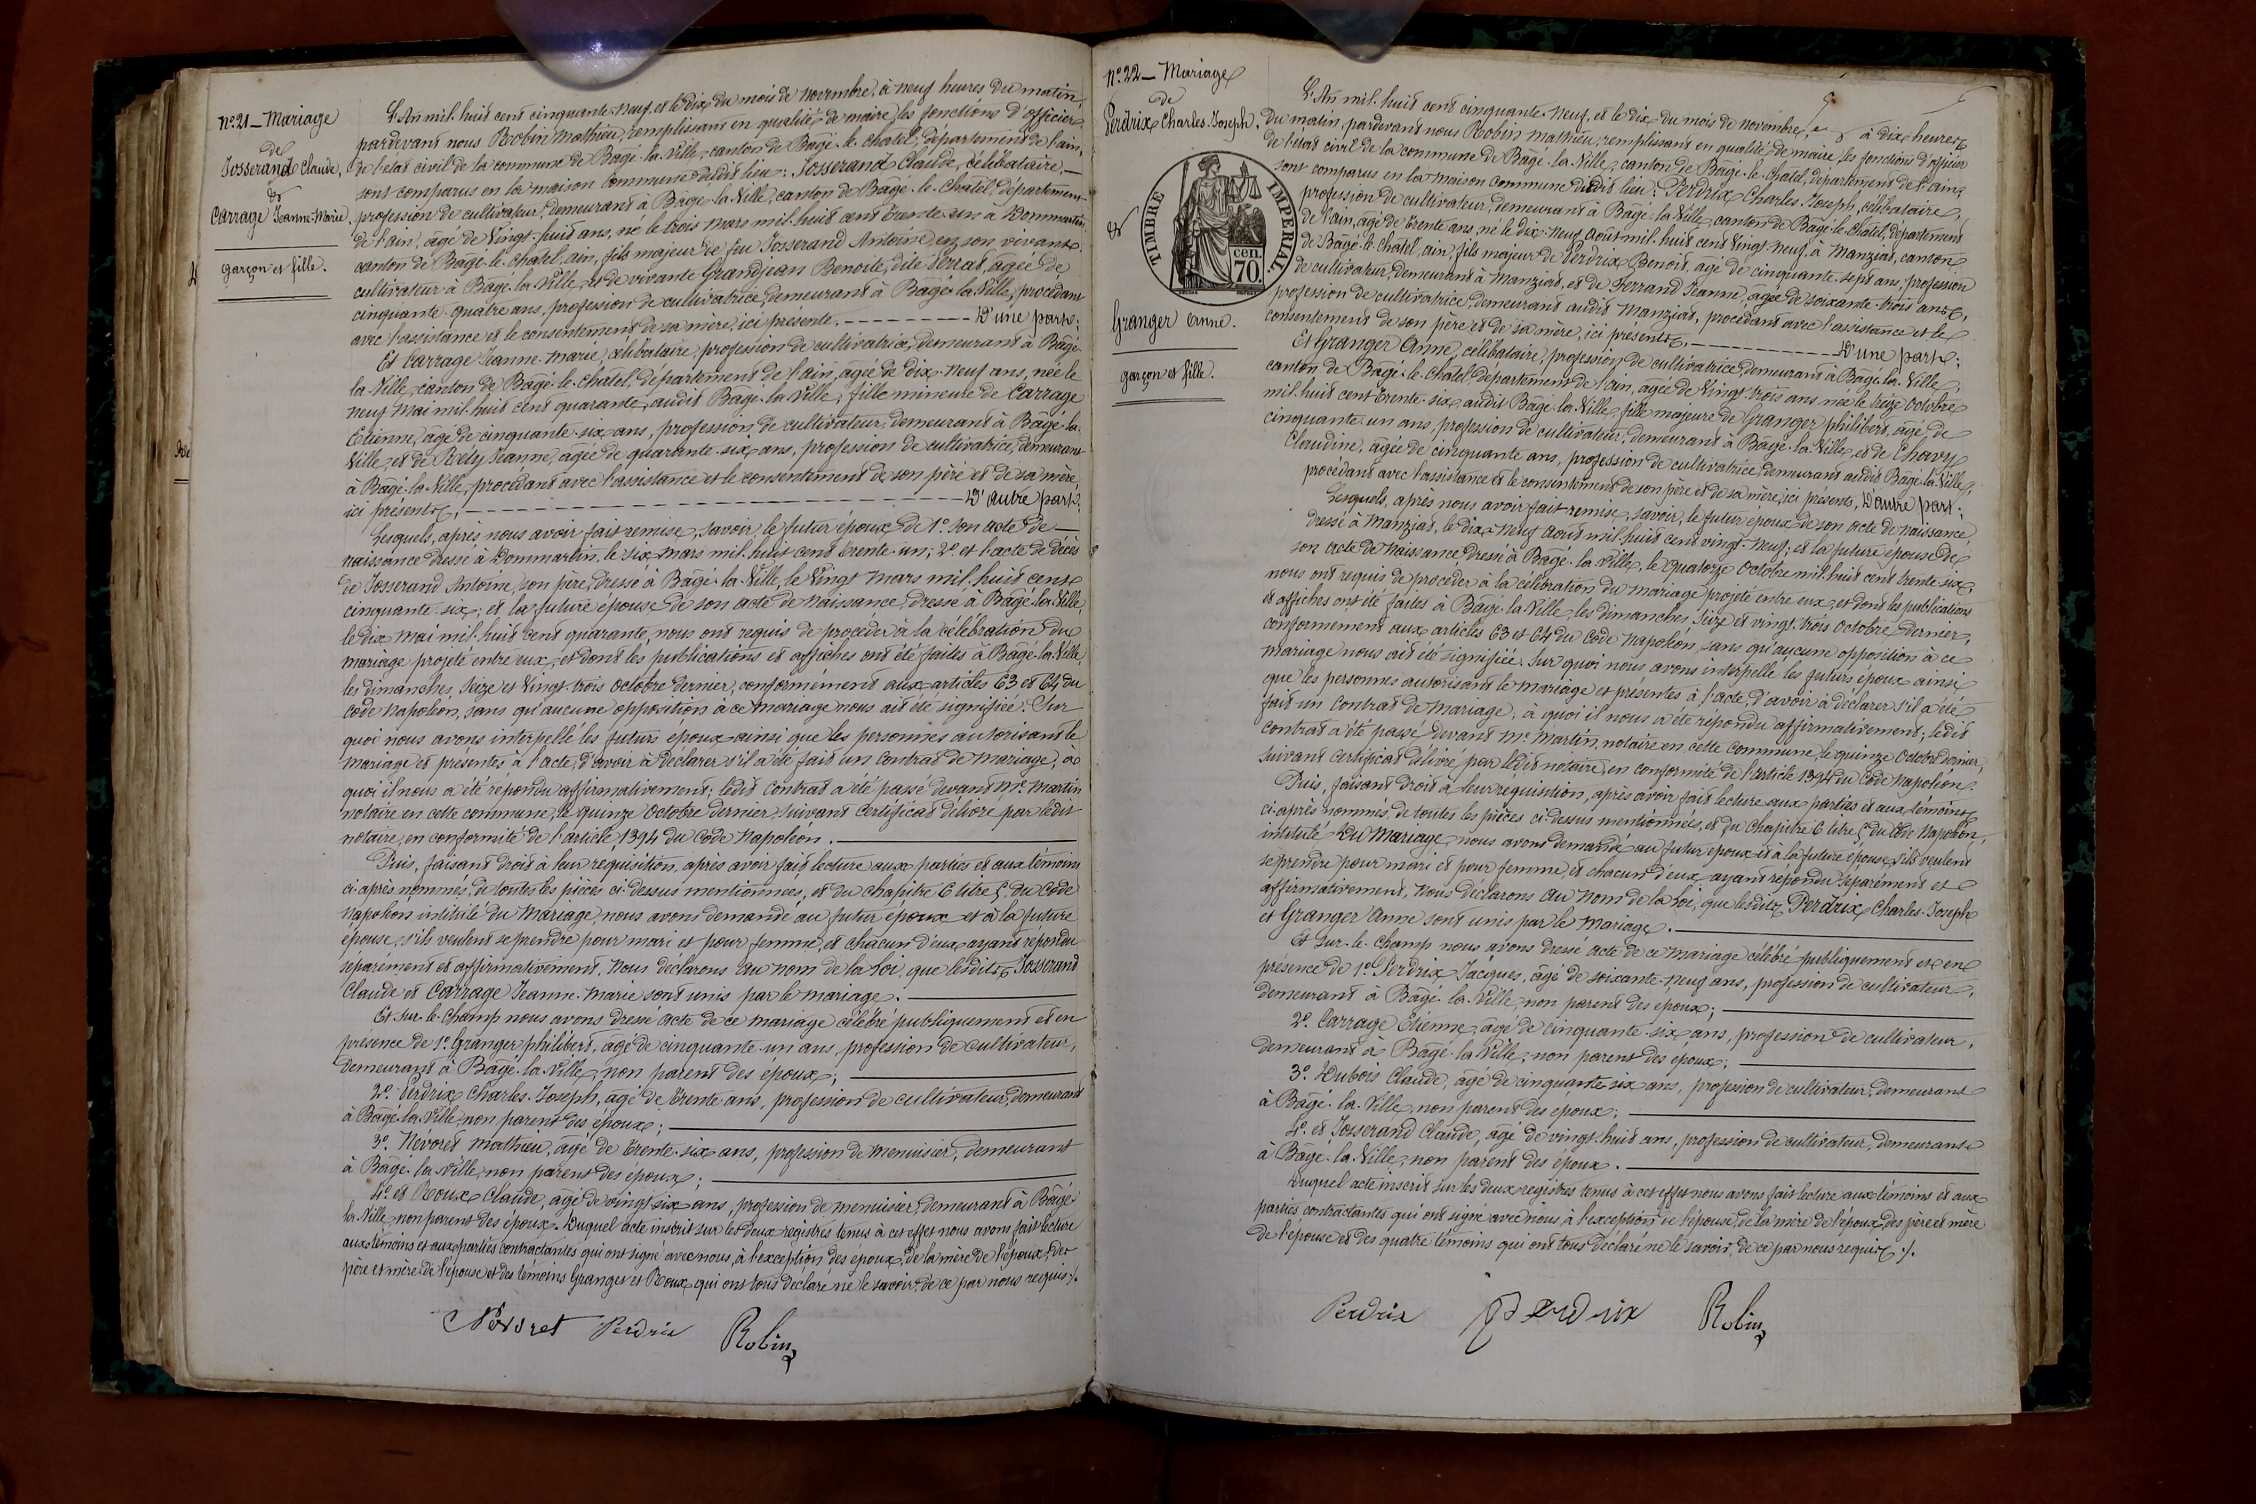 N.° 21 _ Mariage
de
Josserand Claude,
&
Carrage Jeanne-Marie.
garçon et fille.
L'An mil-huit cent cinquante-neuf, et le dix du mois de novembre, à neuf heures du matin,
pardevant nous Robin Mathieu, remplissant en qualité de maire, les fonctions d'officier
de l'état civil de la commune de Bâgé-la-Ville, canton de Bâgé-le-chatel, département de l'ain,
sont comparus en la maison commune dudit lieu: Josserand Claude, célibataire,
profession de cultivateur, demeurant à Bâgé-la-Ville, canton de Bâgé-le-Chatel, département
de l'ain, âgé de vingt-huit ans, né le trois mars mil-huit cent trente-un à Dommartin,
canton de Bâgé-le-chatel, ain, fils majeur de feu Josserand Antoine, en son vivant
cultivateur à Bâgé-la-Ville, et de vivante Grandjean Benoite, dite Terrat, âgée de
cinquante-quatre ans, profession de cultivatrice, demeurant à Bâgé-la-Ville, procédant
avec l'assistance et le consentement de sa mère, ici présente. D'une part;
Et Carrage Jeanne-Marie, célibataire, profession de cultivatrice, demeurant à Bâgé-
la-Ville, canton de Bâgé-le-chatel, département de l'ain, âgée de dix-neuf ans, née le
neuf mai mil-huit cent quarante, audit Bâgé-la-Ville, fille mineure de Carrage
Etienne, âgé de cinquante-six ans, profession de cultivateur, demeurant à Bâgé-la-
Ville, et de Rely Jeanne, âgée de quarante-six ans, profession de cultivatrice, demeurant
à Bâgé-la-Ville, procédant avec l'assistance et le consentement de son père et de sa mère,
ici présents. D'autre part;
Lesquels, après nous avoir fait remise, savoir, le futur époux de 1.° son acte de
naissance dressé à Dommartin, le six mars mil-huit cent trente-un; 2.° et l'acte de décès
de Josserand Antoine, son père, dressé à Bâgé-la-Ville, le vingt mars mil-huit cent
cinquante-six; et la future épouse de son acte de naissance, dressé à Bâgé-la-Ville,
le dix mai mil-huit cent quarante, nous ont requis de procéder à la célébration du
mariage projeté entre eux, et dont les publications et affiches ont été faites à Bâgé-la-Ville,
les dimanches, seize et vingt-trois octobre dernier, conformément aux articles 63 et 64 du
code Napoléon, sans qu'aucune opposition à ce mariage nous ait été signifiée. Sur
quoi nous avons interpellé les futurs époux ainsi que les personnes autorisant le
mariage et présentes à l'acte, d'avoir à déclarer s'il a été fait un contrat de mariage, à
quoi il nous a été répondu affirmativement; ledit contrat a été passé devant M.e Martin
notaire en cette commune, le quinze octobre dernier, suivant certificat délivré par ledit
notaire, en conformité de l'article 1394 du code Napoléon.
Puis, faisant droit à leur requisition, après avoir fait lecture aux parties et aux témoins
ci-après nommés, de toutes les pièces ci-dessus mentionnées, et du chapitre 6 titre 5 du Code
Napoléon intitulé du Mariage, nous avons demandé au futur époux et à la future
épouse, s'ils veulent se prendre pour mari et pour femme, et chacun d'eux ayant répondu
séparément et affirmativement, Nous déclarons au nom de la Loi, que lesdits Josserand
Claude et Carrage Jeanne-Marie sont unis par le mariage.
Et sur-le-champ nous avons dressé acte de ce mariage célébré publiquement et en
présence de 1.° Granger philibert, âgé de cinquante-un ans, profession de cultivateur,
demeurant à Bâgé-la-Ville, non parent des époux;
2.° Perdrix Charles-Joseph, âgé de trente ans, profession de cultivateur, demeurant
à Bâgé-la-Ville, non parent des époux;
3.° Névoret Mathieu, âgé de trente-six ans, profession de menuisier, demeurant
à Bâgé-la-Ville, non parent des époux;
4.° et Roux Claude, âgé de vingt-six ans, profession de menuisier, demeurant à Bâgé-
la-Ville, non parent des époux. Duquel acte inscrit sur les deux registres tenus à cet effet nous avons fait lecture
aux témoins et aux parties contractantes qui ont signé avec nous, à l'exception des époux, de la mère de l'époux, des
père et mère de l'épouse et des témoins Granger et Roux, qui ont tous déclaré ne le savoir, de ce par nous requis./.
Névoret Perdrix Robin
N.° 22 _ Mariage
de
Perdrix Charles-Joseph,
&
TIMBRE IMPERIAL.
70 cen.
Granger Anne.
garçon et fille.
L'An mil-huit cent cinquante-neuf, et le dix du mois de novembre, à dix heures
du matin, pardevant nous Robin Mathieu, remplissant en qualité de maire, les fonctions d'officier
de l'état civil de la commune de Bâgé-la-Ville, canton de Bâgé-le-chatel, département de l'ain,
sont comparus en la maison commune dudit lieu: Perdrix Charles-Joseph, célibataire,
profession de cultivateur, demeurant à Bâgé-la-Ville, canton de Bâgé-le-Chatel, département
de l'ain, âgé de trente ans, né le dix-neuf août mil-huit cent vingt-neuf, à Manziat, canton
de Bâgé-le-chatel, ain, fils majeur de Perdrix Benoit, âgé de cinquante-sept ans, profession
de cultivateur, demeurant à Manziat, et de Ferrand Jeanne, âgée de soixante-trois ans,
profession de cultivatrice, demeurant audit Manziat, procédant avec l'assistance et le
consentement de son père et de sa mère, ici présents. D'une part;
Et Granger Anne, célibataire, profession de cultivatrice, demeurant à Bâgé-la-Ville,
canton de Bâgé-le-chatel, département de l'ain, âgée de vingt-trois ans née le treize octobre
mil-huit cent trente-six, audit Bâgé-la-Ville, fille majeure de Granger philibert, âgé de
cinquante-un ans, profession de cultivateur, demeurant à Bâgé-la-Ville, et de Chavy
Claudine, âgée de cinquante ans, profession de cultivatrice, demeurant audit Bâgé-la-Ville,
procédant avec l'assistance et le consentement de son père et de sa mère, ici présents, D'autre part;
Lesquels, après nous avoir fait remise, savoir, le futur époux de son acte de naissance,
dressé à Manziat, le dix-neuf août mil-huit cent vingt-neuf; et la future épouse de
son acte de naissance, dressé à Bâgé-la-Ville, le quatorze octobre mil-huit cent trente-six,
nous ont requis de procéder à la célébration du mariage projeté entre eux, et dont les publications
et affiches ont été faites à Bâgé-la-Ville, les dimanches seize et vingt-trois octobre dernier,
conformément aux articles 63 et 64 du Code Napoléon, sans qu'aucune opposition à ce
mariage nous ait été signifiée. Sur quoi nous avons interpellé les futurs époux ainsi
que les personnes autorisant le mariage et présentes à l'acte, d'avoir à déclarer s'il a été
fait un contrat de mariage, à quoi il nous a été répondu affirmativement; ledit
contrat a été passé devant M.e Martin, notaire en cette commune, le quinze octobre dernier,
suivant certificat délivré par ledit notaire, en conformité de l'article 1394 du Code Napoléon.
Puis, faisant droit à leur requisition, après avoir fait lecture aux parties et aux témoins
ci-après nommés, de toutes les pièces ci-dessus mentionnées, et du chapitre 6 titre 5 du Code Napoléon,
intitulé Du Mariage, nous avons demandé au futur époux et à la future épouse, s'ils veulent
se prendre pour mari et pour femme, et chacun d'eux ayant répondu séparément et
affirmativement, Nous déclarons au nom de la Loi, que lesdits Perdrix Charles-Joseph
et Granger Anne sont unis par le mariage.
Et sur-le-champ nous avons dressé acte de ce mariage célébré publiquement et en
présence de 1.° Perdrix Jacques, âgé de soixante-neuf ans, profession de cultivateur,
demeurant à Bâgé-la-Ville, non parent des époux;
2.° Carrage Etienne, âgé de cinquante-six ans, profession de cultivateur,
demeurant à Bâgé-la-Ville, non parent des époux;
3.° Dubois Claude, âgé de cinquante-six ans, profession de cultivateur, demeurant
à Bâgé-la-Ville, non parent des époux;
4.° et Josserand Claude, âgé de vingt-huit ans, profession de cultivateur, demeurant
à Bâgé-la-Ville, non parent des époux.
Duquel acte inscrit sur les deux registres tenus à cet effet nous avons fait lecture aux témoins et aux
parties contractantes qui ont signé avec nous, à l'exception de l'épouse, de la mère de l'époux, des père et mère
de l'épouse et des quatre témoins qui ont tous déclaré ne le savoir, de ce par nous requis./.
Perdrix Perdrix Robin